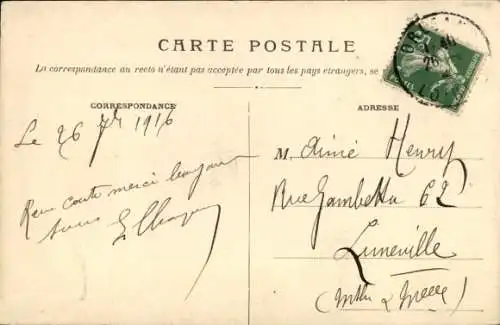 CARTE POSTALE
La correspondance au recto n'étant pas acceptée par tous les pays étrangers, se
CORRESPONDANCE
ADRESSE
Le 26 7bre 1916
M. Aimé Henry
Reçu carte merci bonjour
Rue Gambetta 62
Luneville
(Mthe & Mselle)